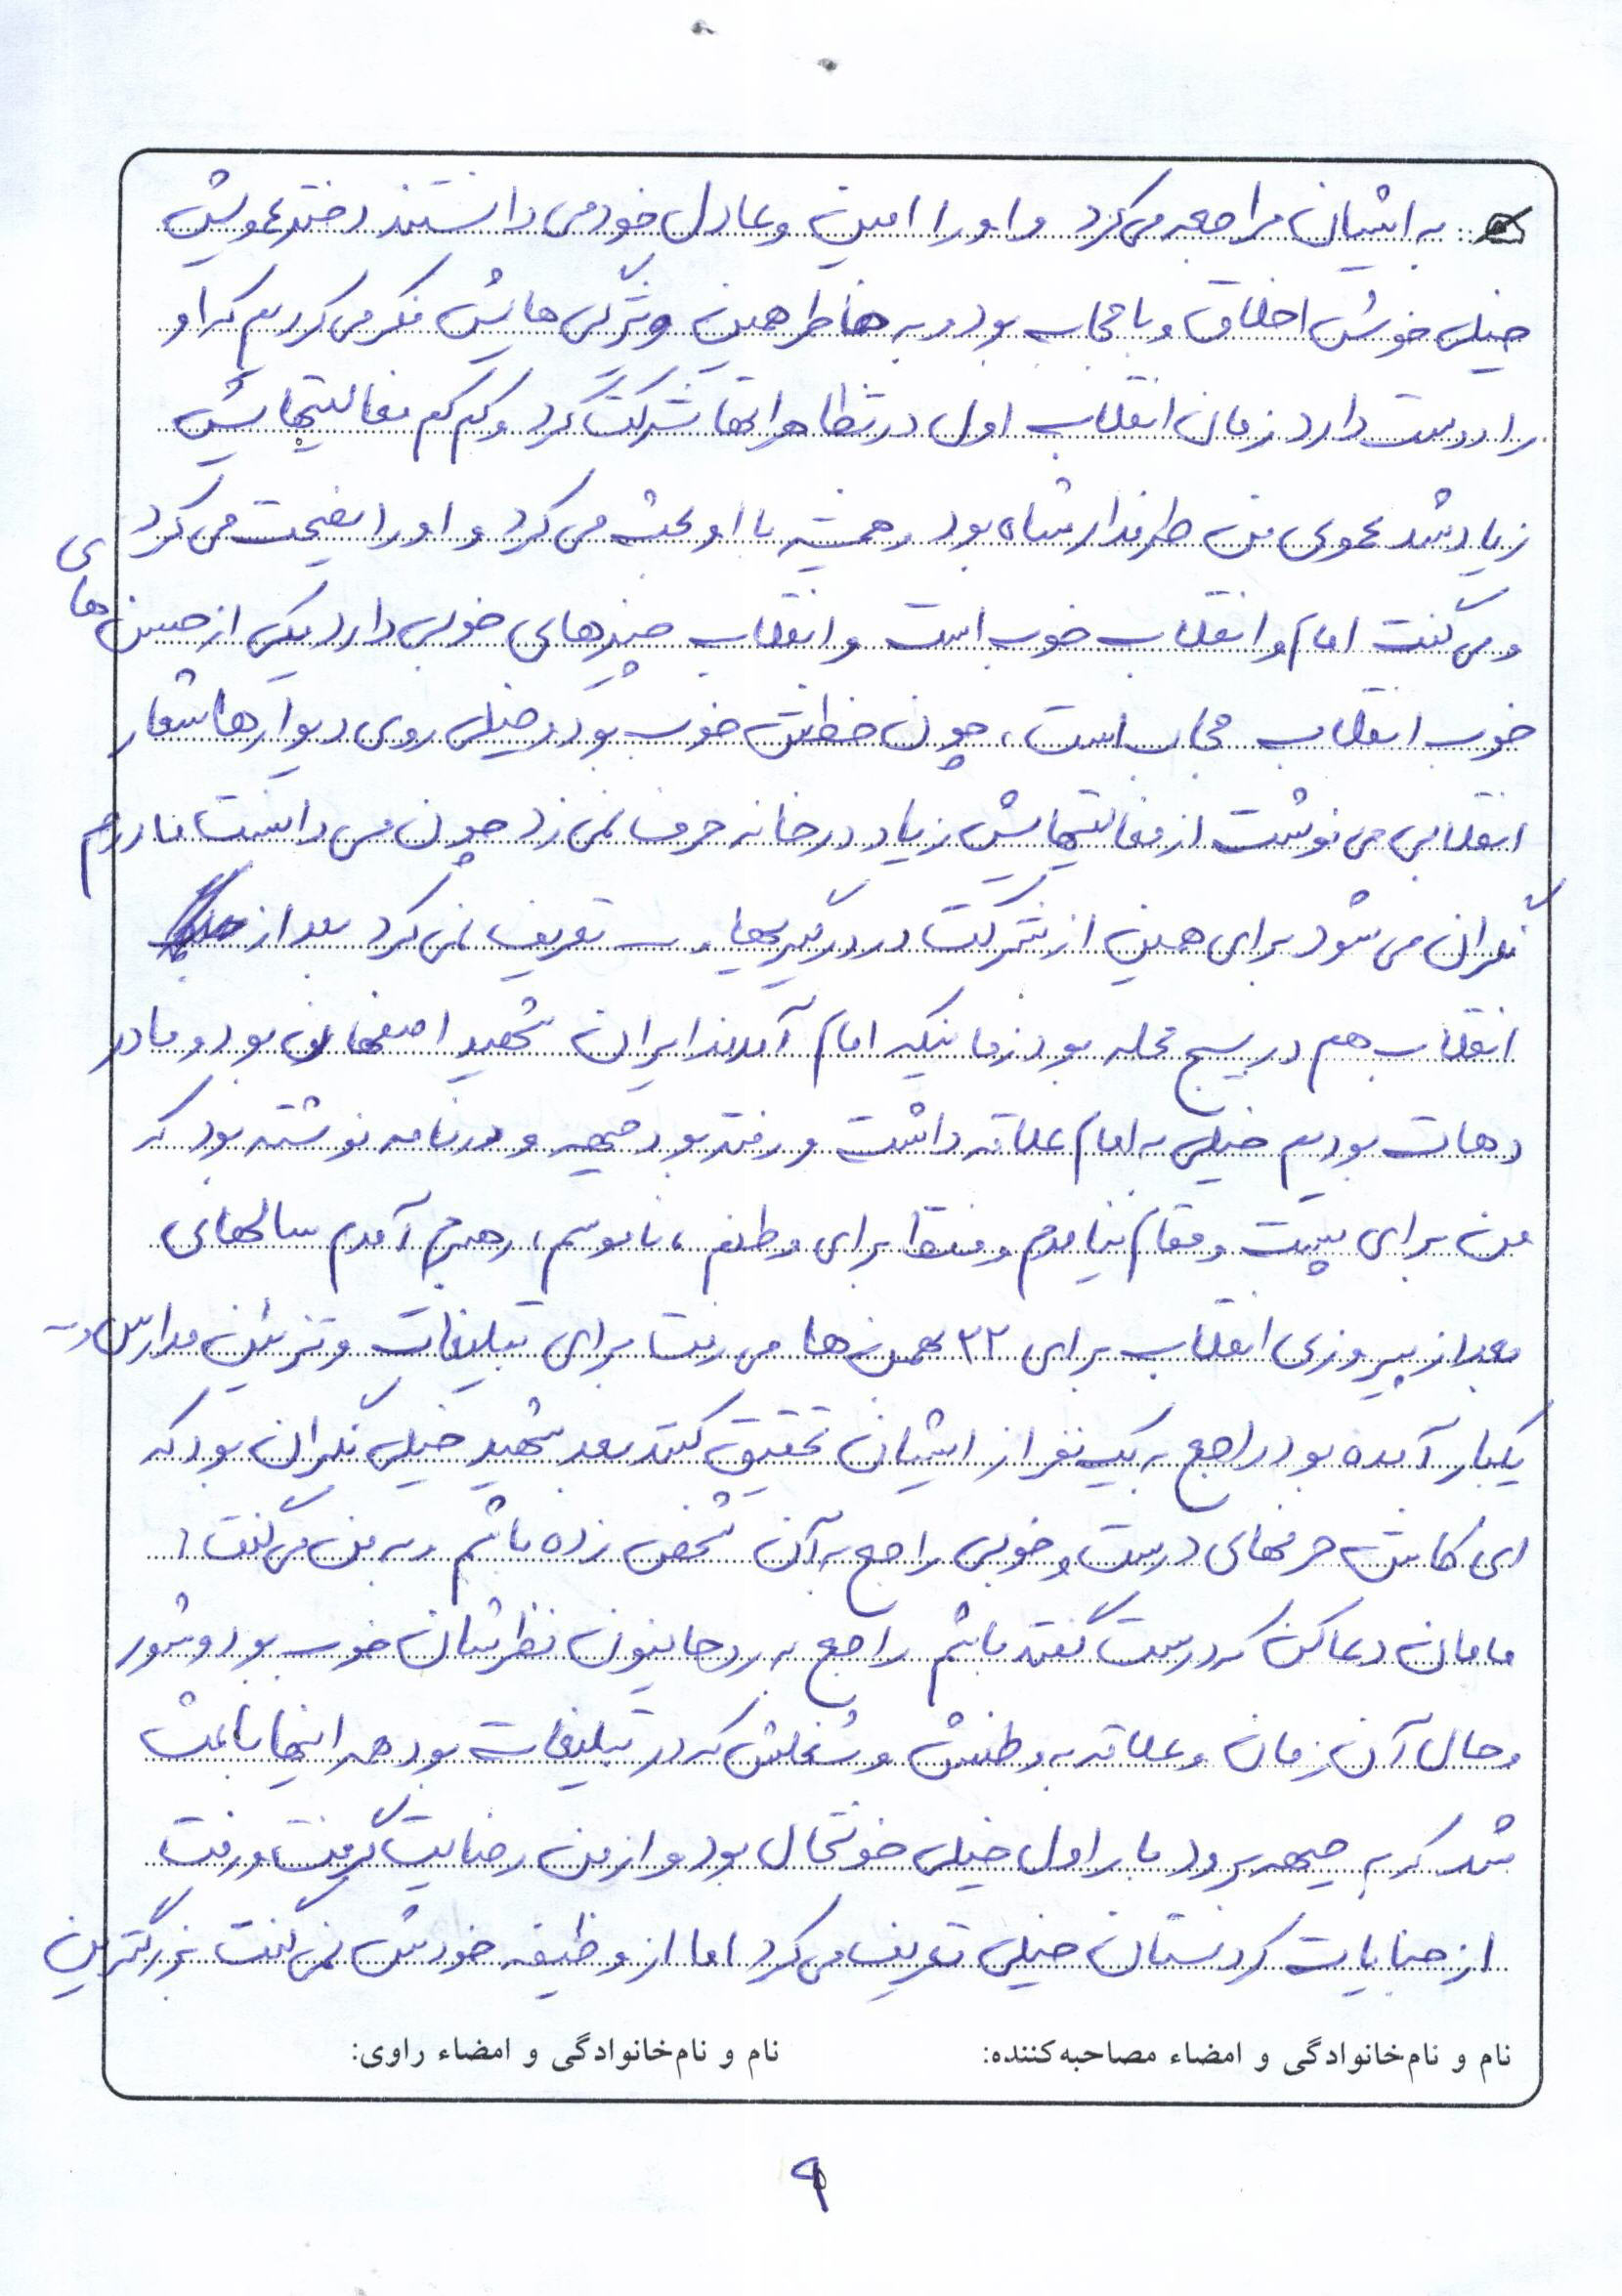 به ایشان مراجعه می‌کرد و او را امین و عادل خود می دانستند دختر عمویش
خیلی خوش اخلاق و با حجاب بود و به خاطر همین ویژگی هایش فکر می کردیم که او
را دوست دارد زمان انقلاب اول در تظاهراتها شرکت کرد و کم کم فعالیتهایش
زیاد شد عموی من طرفدار شاه بود و همیشه با او بحث می کرد و او را نصیحت می کرد
و می گفت امام و انقلاب خوب است و انقلاب چیزهای خوبی دارد یکی از حسن های
خوب انقلاب حجاب است، چون خطش خوب بود و خیلی روی دیوارها شعار
انقلابی می نوشت از فعالیتهایش زیاد در خانه حرف نمی زد چون می دانست مادرم
نگران می شود برای همین از شرکت در درگیریها و ... تعریف نمی کرد بعد از
انقلاب هم در بسیج محله بود زمانیکه امام آمدند ایران شهید اصفهان بود و ما در
دهات بودیم خیلی به امام علاقه داشت و رفته بود جبهه و در نامه نوشته بود که
من برای پست و مقام نیامدم و فقط برای وطنم، ناموسم، رهبرم آمدم سالهای
بعد از پیروزی انقلاب برای ۲۲ بهمن ها می رفت برای تبلیغات و تزئین مدارس و ...
یکبار آمده بود راجع به یک نفر از ایشان تحقیق کنند بعد شهید خیلی نگران بود که
ای کاش حرفهای درست و خوبی راجع به آن شخص زده باشم و به من می گفت:
مامان دعا کن که درست گفته باشم راجع به روحانیون نظرشان خوب بود و شور
و حال آن زمان و علاقه به وطنش و شغلش که در تبلیغات بود همه اینها باعث
شد که به جبهه برود بار اول خیلی خوشحال بود و از من رضایت گرفت و رفت
از جنایات کردستان خیلی تعریف می کرد اما از وظیفه خودش نمی گفت بزرگترین
نام و نام‌خانوادگی و امضاء مصاحبه‌کننده:
نام و نام‌خانوادگی و امضاء راوی:
۹